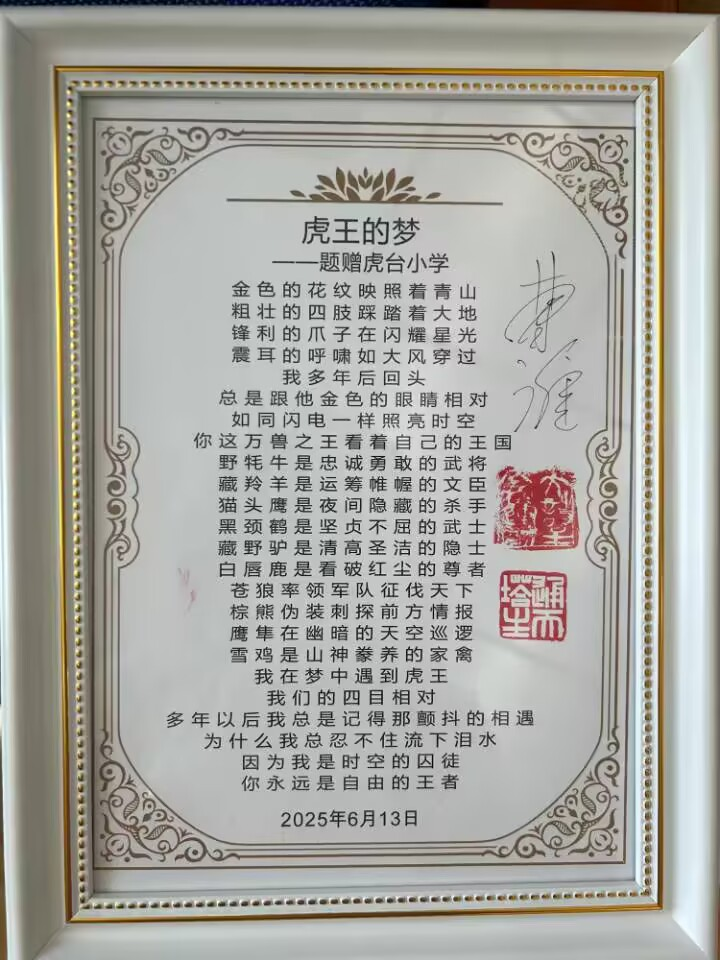 虎王的梦
——题赠虎台小学
金色的花纹映照着青山
粗壮的四肢踩踏着大地
锋利的爪子在闪耀星光
震耳的呼啸如大风穿过
我多年后回头
总是跟他金色的眼睛相对
如同闪电一样照亮时空
你这万兽之王看着自己的王国
野牦牛是忠诚勇敢的武将
藏羚羊是运筹帷幄的文臣
猫头鹰是夜间隐藏的杀手
黑颈鹤是坚贞不屈的武士
藏野驴是清高圣洁的隐士
白唇鹿是看破红尘的尊者
苍狼率领军队征伐天下
棕熊伪装刺探前方情报
鹰隼在幽暗的天空巡逻
雪鸡是山神豢养的家禽
我在梦中遇到虎王
我们的四目相对
多年以后我总是记得那颤抖的相遇
为什么我总忍不住流下泪水
因为我是时空的囚徒
你永远是自由的王者
2025年6月13日